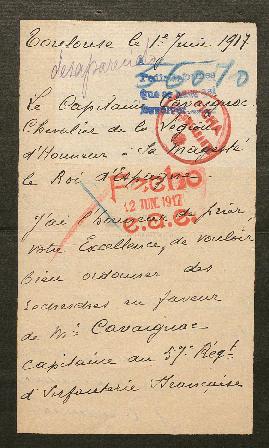 Toulouse le 1er Juin 1917
desaparecido
5670
Le Capitaine Cavaignac
Chevalier de la Légion
d'Honneur à Sa Majesté
le Roi d'Espagne
FECHO
12 JUN. 1917
J'ai l'honneur de prier
votre Excellence, de vouloir
bien ordonner des
recherches en faveur
de Mr Cavaignac
capitaine au 57e Régt
d'Infanterie Française